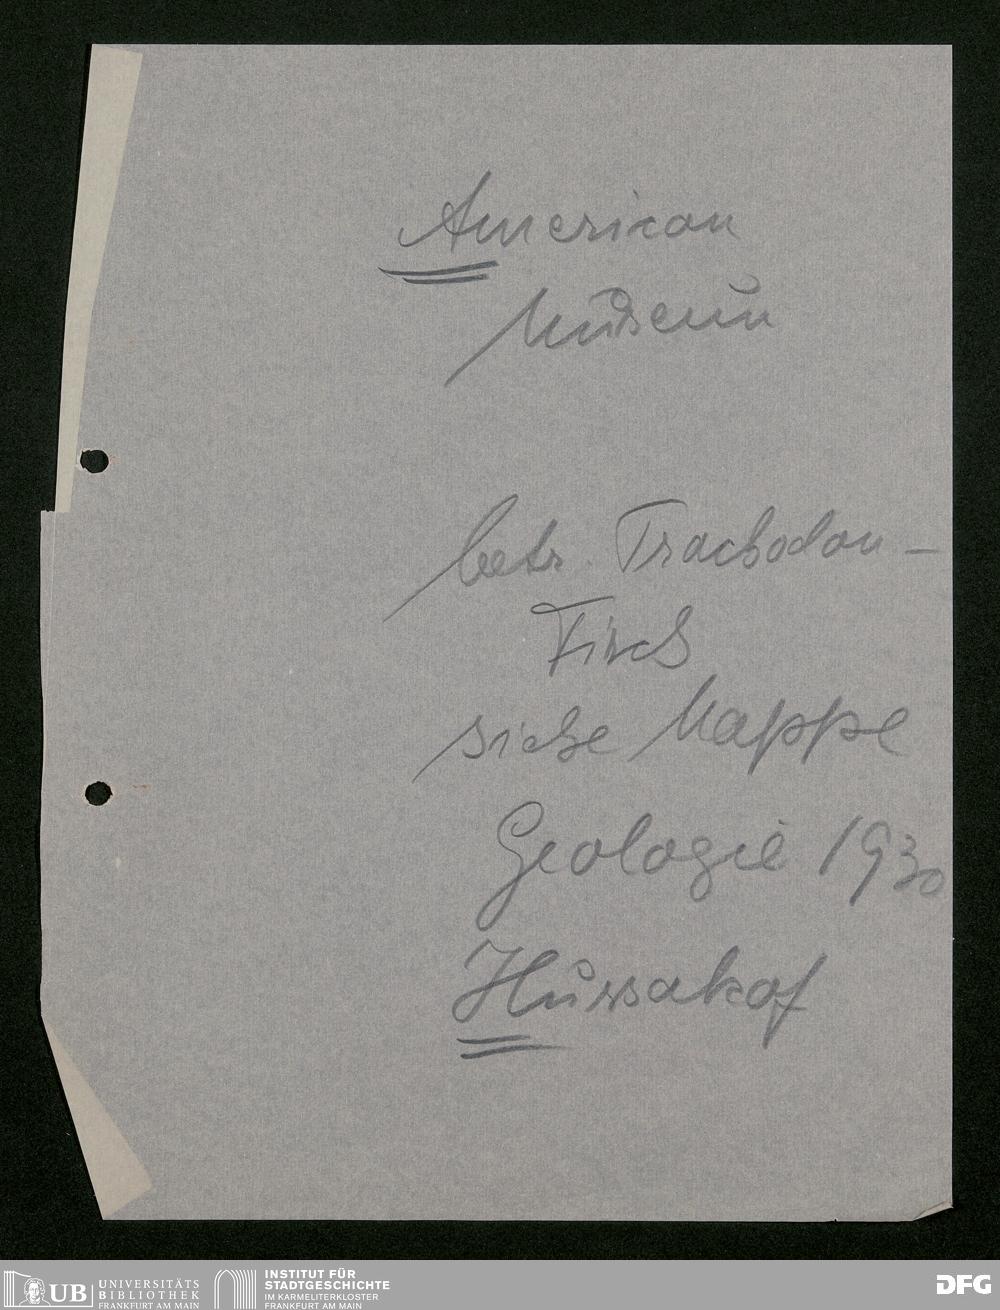 American
Museum
betr. Trachodon-
Fisch
siehe Mappe
Geologie 1930
Hussakof
UB UNIVERSITÄTS
BIBLIOTHEK
FRANKFURT AM MAIN
INSTITUT FÜR
STADTGESCHICHTE
IM KARMELITERKLOSTER
FRANKFURT AM MAIN
DFG